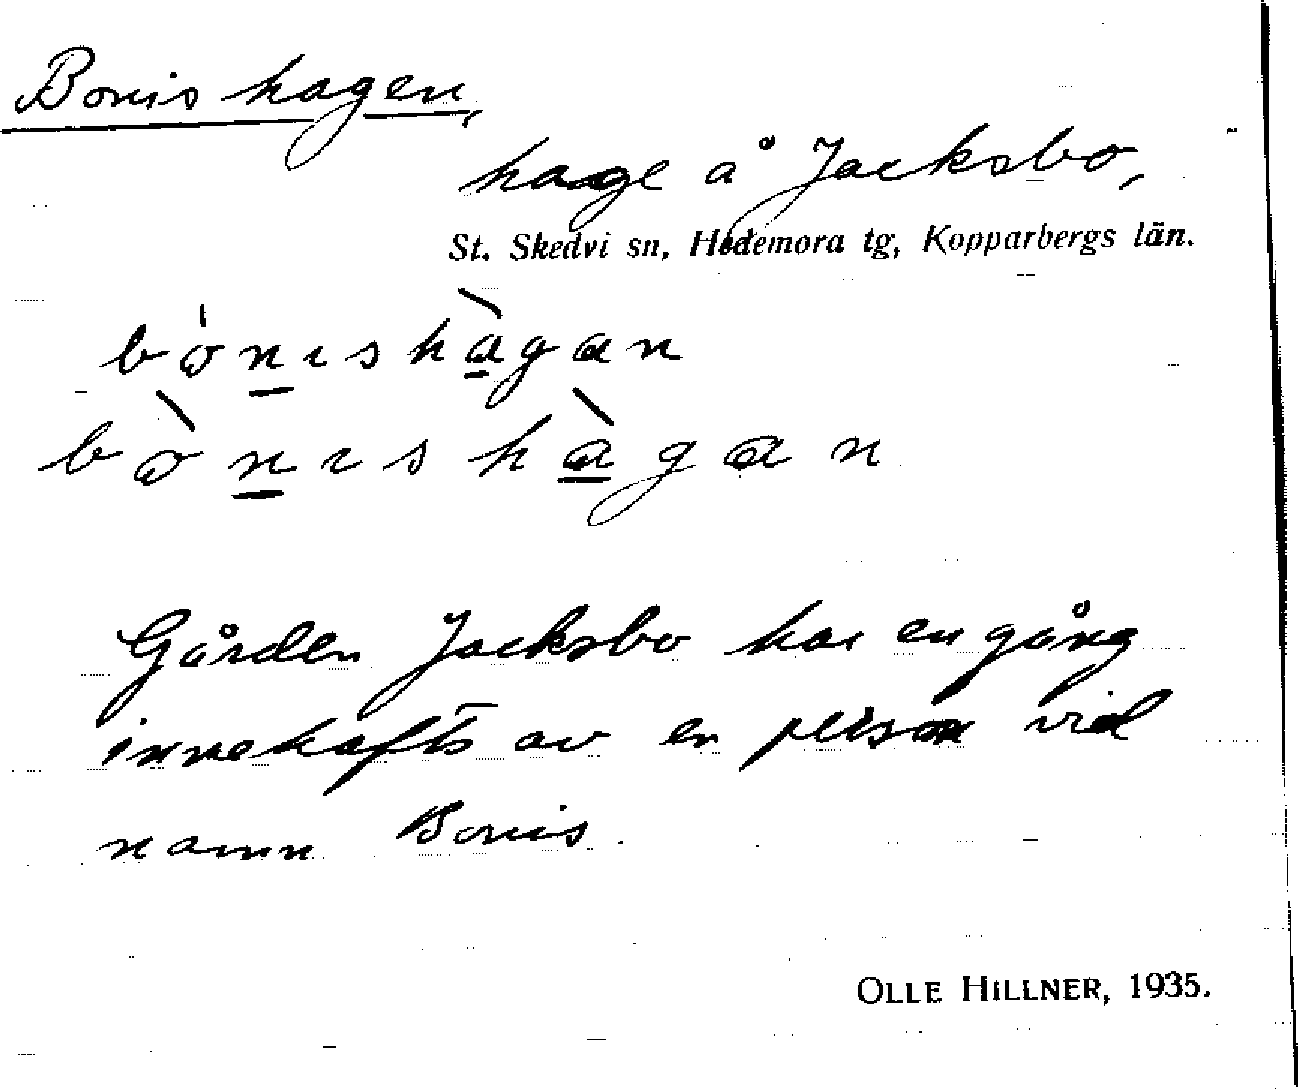 Bonis hagen,
hage å Jacksbo,
St. Skedvi sn, Hedemora tg, Kopparbergs län.
bónıshàgan
bònıshàgan
Gården Jacksbo har en gång
innehafts av en person vid
namn Bonis.
OLLE HILLNER, 1935.